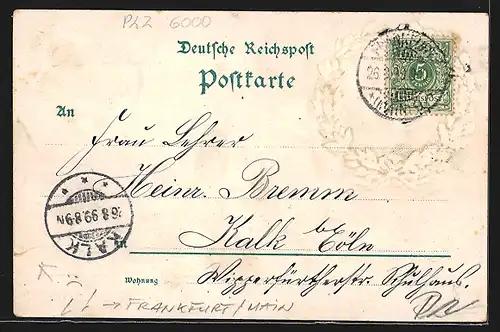 PLZ 6000
Deutsche Reichspost
Postkarte
5
An
Frau Lehrer
Heinr. Bremm
in Kalk b/ Cöln
Wohnung Wipperfürtherstr. Schulhaus.
26.8.99.8-9N
KALK
→ FRANKFURT/MAIN